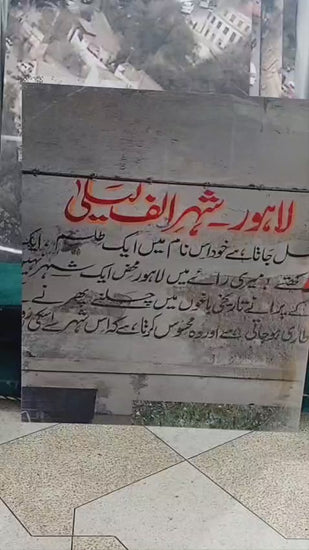 لاہور۔ شہر الف لیلیٰ
جانا ہے خود اس نام میں ایک طلسم ہے، ایک
میری رائے میں لاہور محض ایک شہر نہیں
کے پرانے تاریخی باغوں میں چلنے پھرنے
طاری ہو جاتی ہے اور وہ محسوس کرتا ہے کہ اس شہر